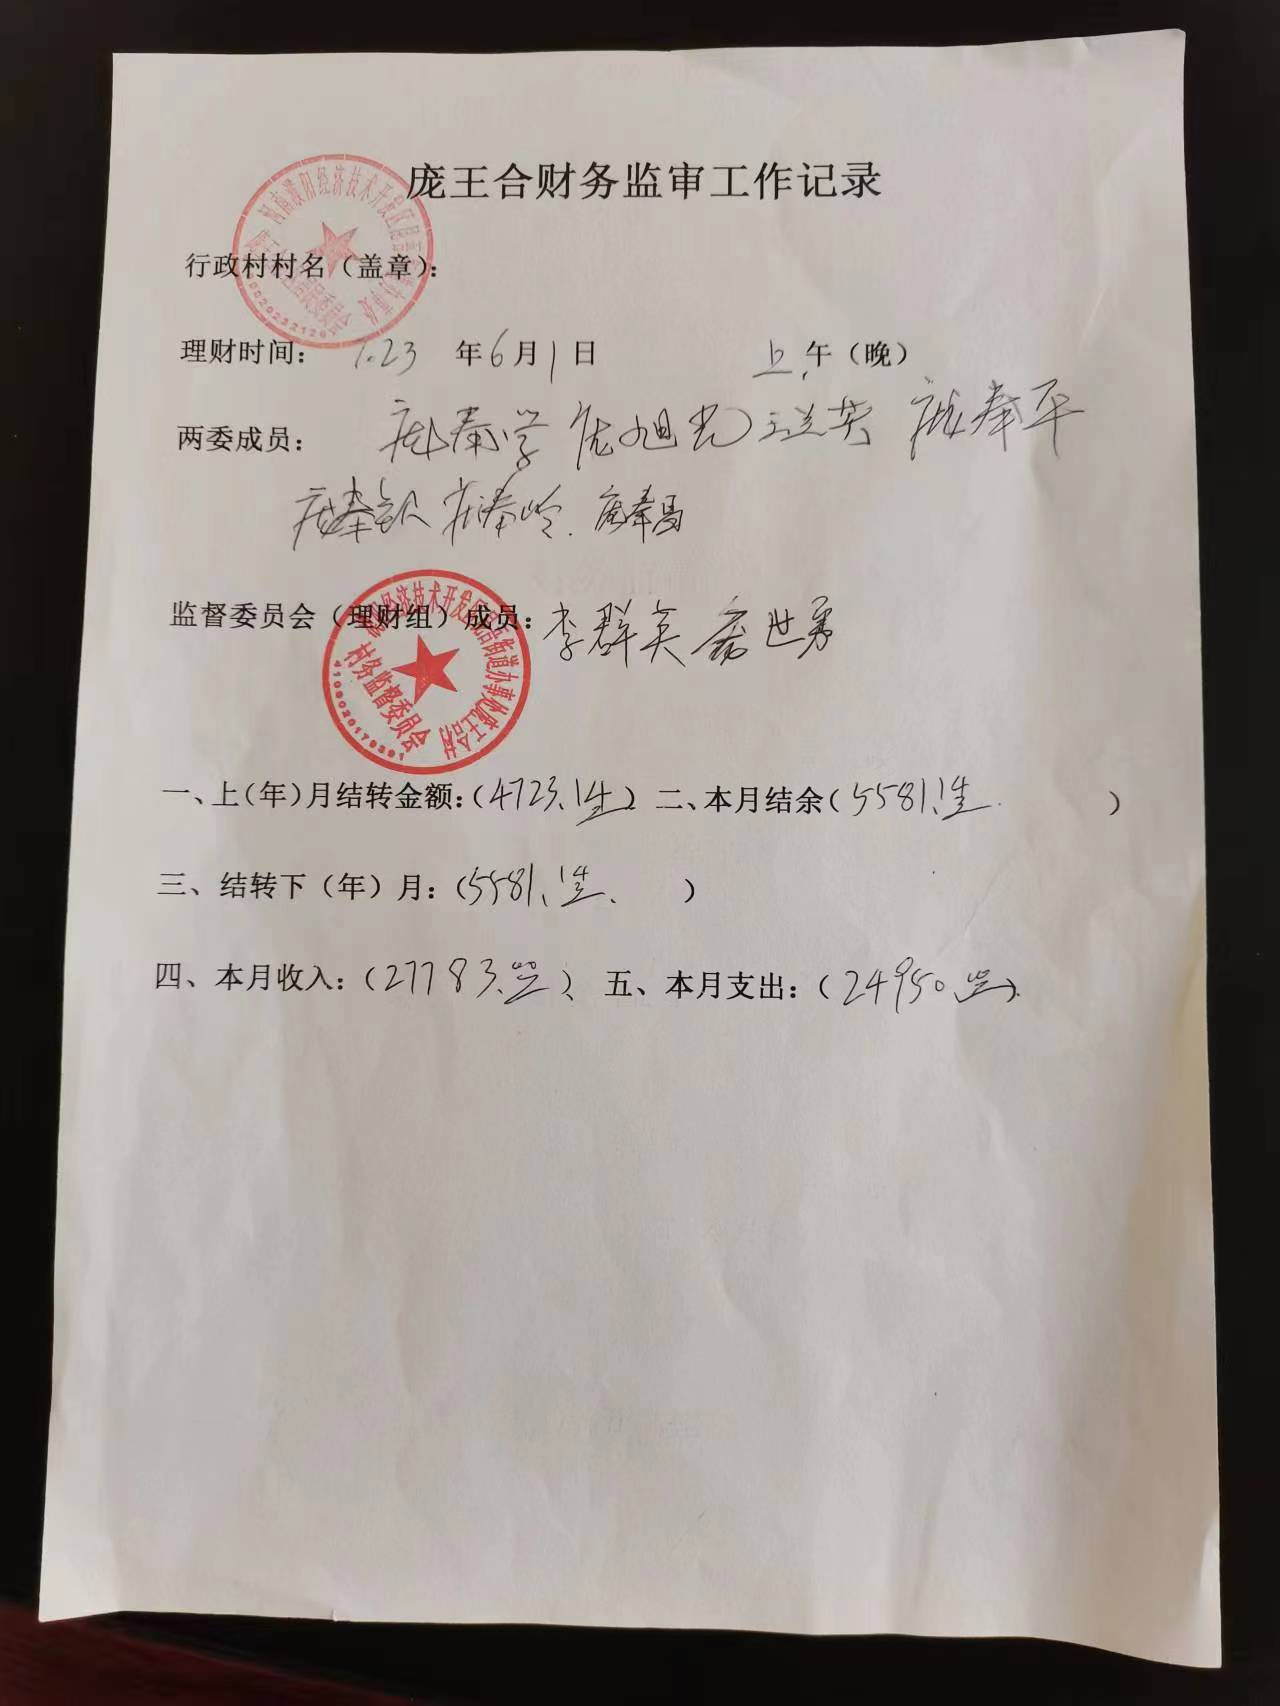 庞王合财务监审工作记录
行政村村名（盖章）：
理财时间： 2023 年 6 月 1 日 上午（晚）
两委成员： 庞奉学 庞旭光 王选英 庞奉平
庞奉钦 庞奉岭 庞奉昌
监督委员会（理财组）成员： 李群英 庞世勇
村务监督委员会
4109020170391
一、上（年）月结转金额：（4723、） 二、本月结余（5581、）
三、结转下（年）月：（5581、）
四、本月收入：（27783、） 五、本月支出：（24950、）